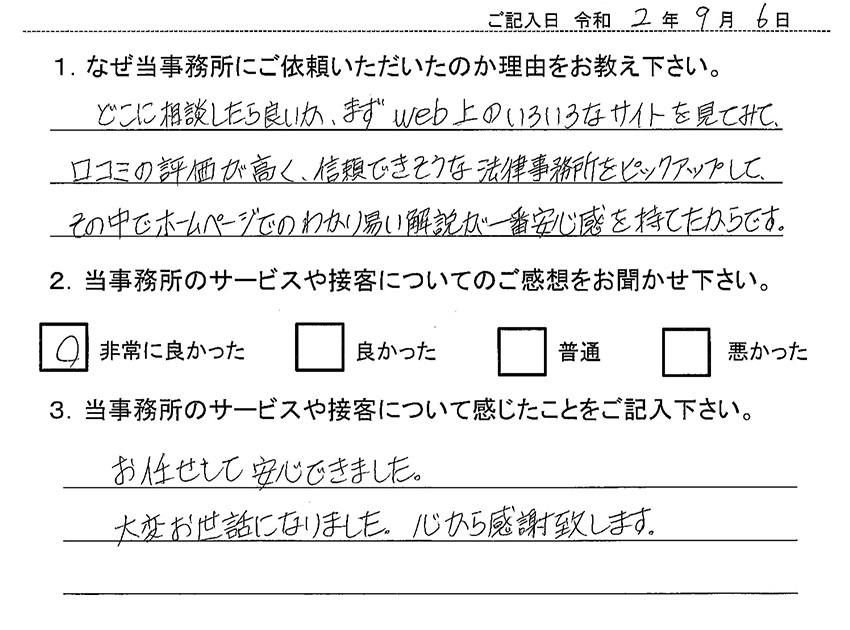 ご記入日 令和 2 年 9 月 6 日
1. なぜ当事務所にご依頼いただいたのか理由をお教え下さい。
どこに相談したら良いか、まずweb上のいろいろなサイトを見てみて、
口コミの評価が高く、信頼できそうな法律事務所をピックアップして、
その中でホームページでのわかり易い解説が一番安心感を持てたからです。
2. 当事務所のサービスや接客についてのご感想をお聞かせ下さい。
非常に良かった 良かった 普通 悪かった
3. 当事務所のサービスや接客について感じたことをご記入下さい。
お任せして安心できました。
大変お世話になりました。心から感謝致します。